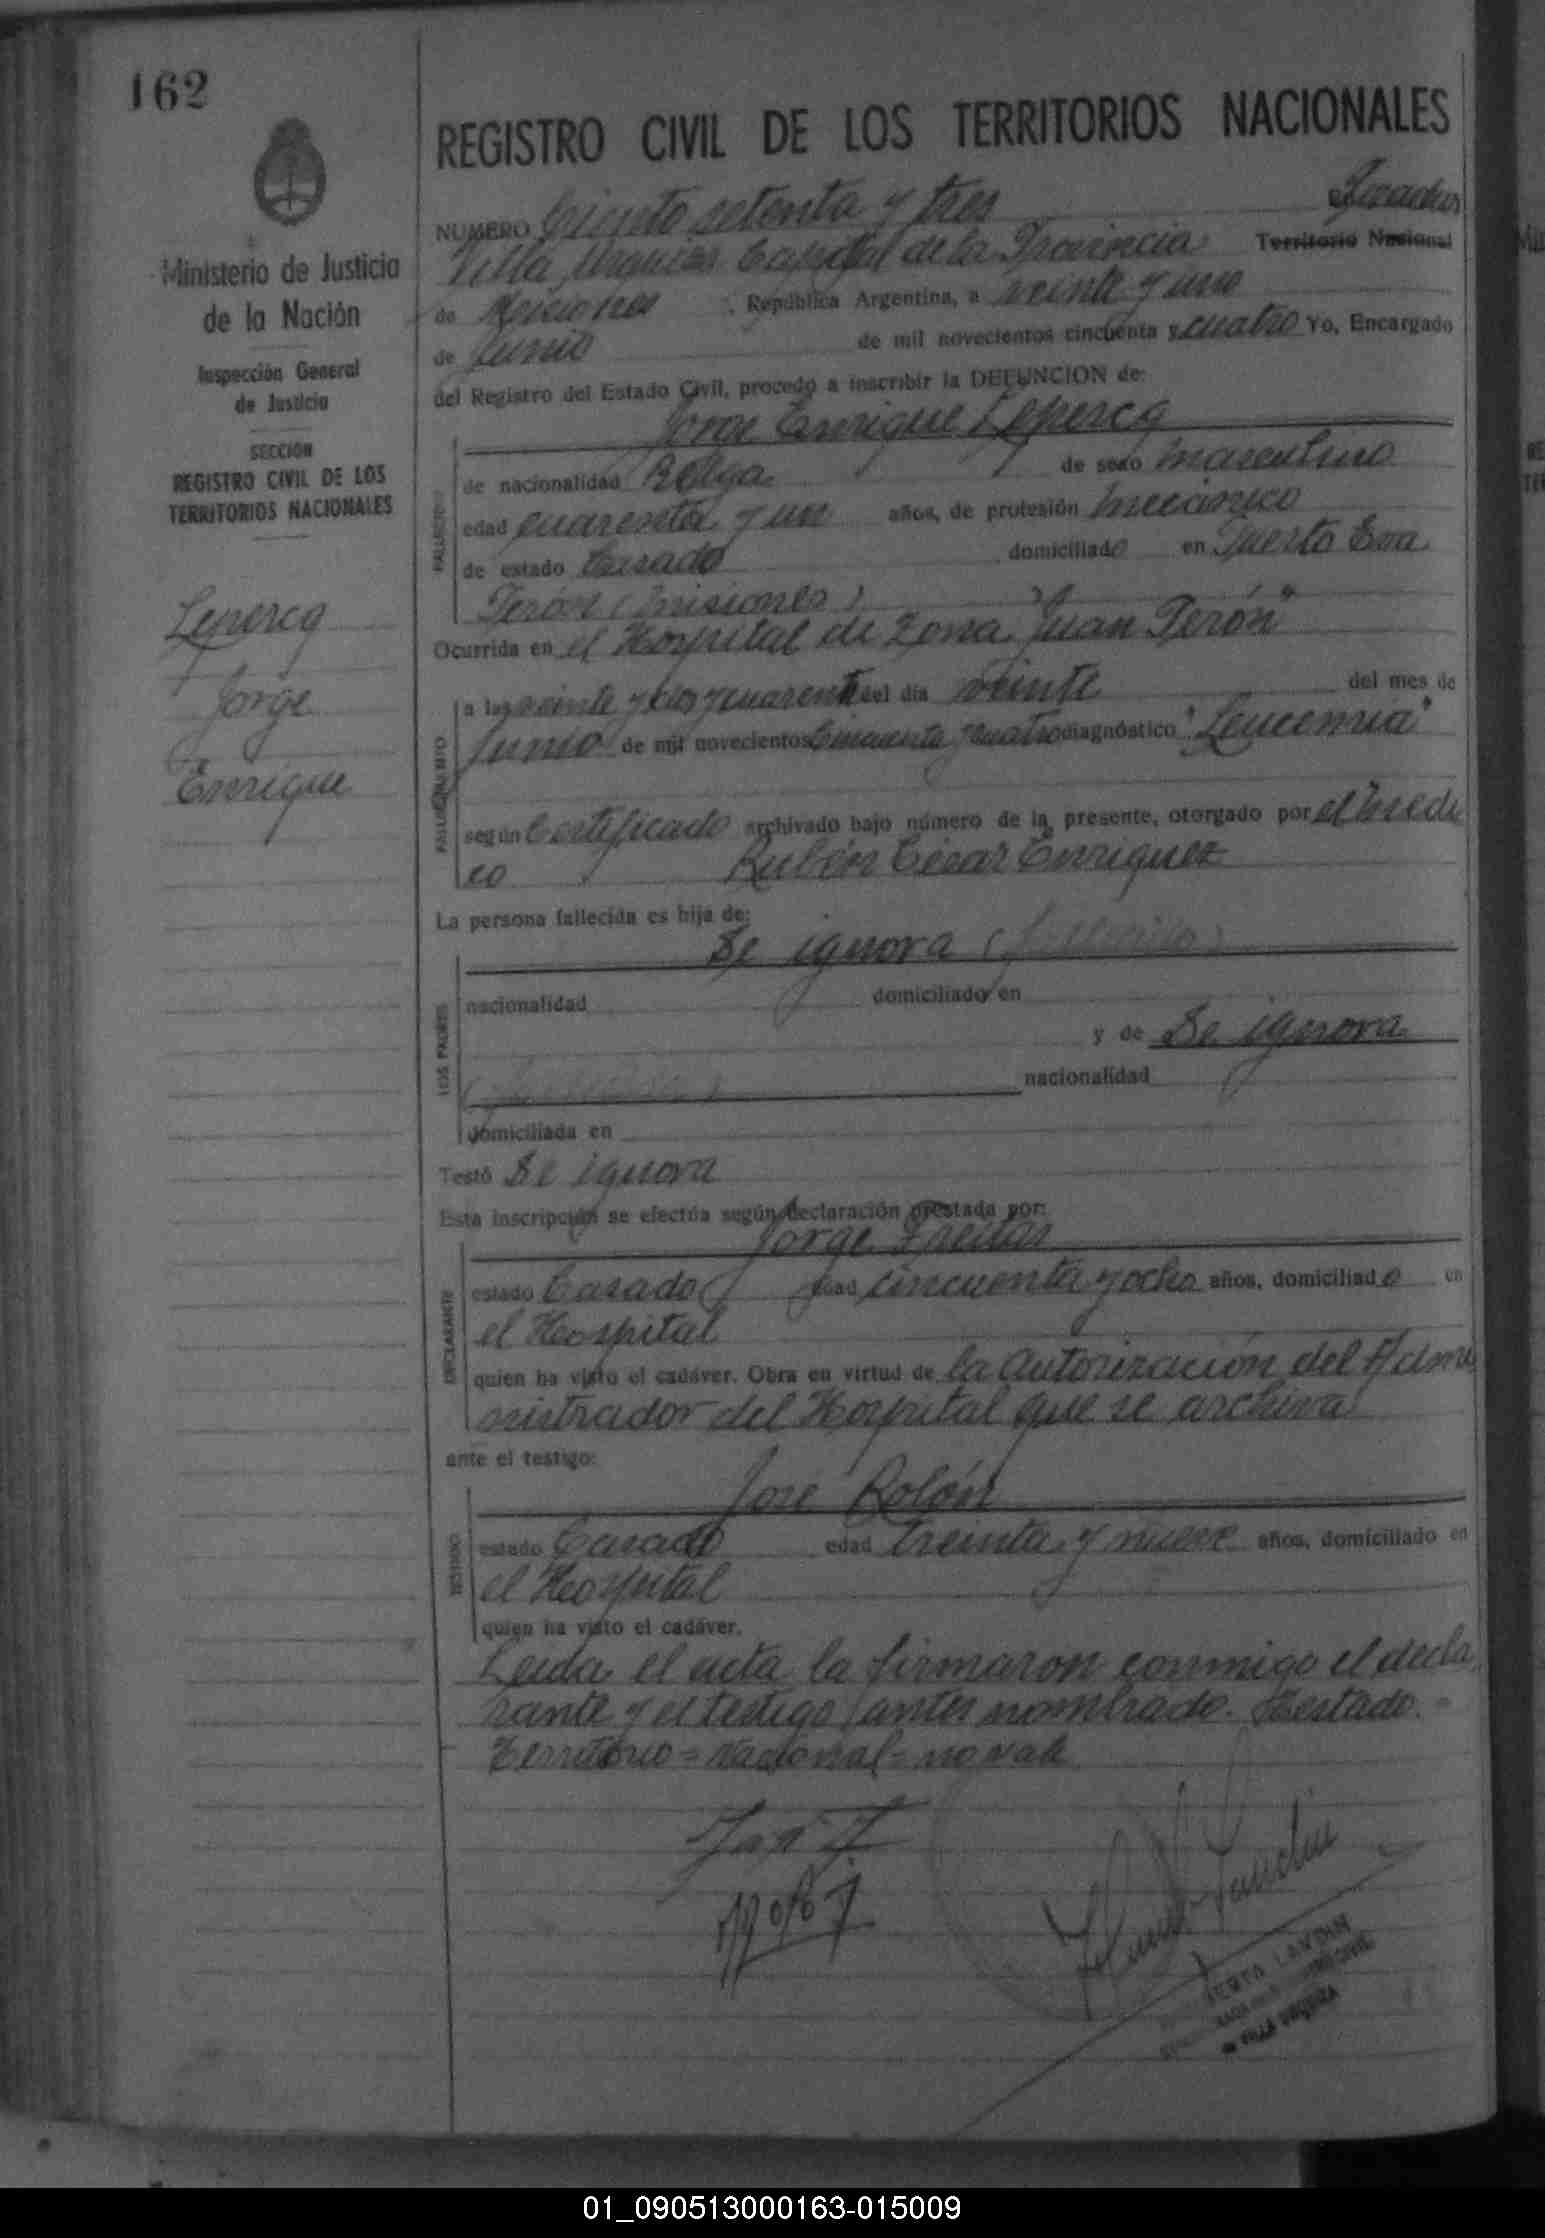 162
REGISTRO CIVIL DE LOS TERRITORIOS NACIONALES
Ministerio de Justicia
de la Nación
Inspección General
de Justicia
SECCION
REGISTRO CIVIL DE LOS
TERRITORIOS NACIONALES
Lepercq
Jorge
Enrique
NUMERO Ciento setenta y tres
Villa Capital de la Provincia Territorio Nacional
de Misiones, República Argentina, a veinte y uno
de Junio de mil novecientos cincuenta y cuatro Yo, Encargado
del Registro del Estado Civil, procedo a inscribir la DEFUNCION de:
Jorge Enrique Lepercq
FALLECIDO
de nacionalidad Belga de sexo masculino
edad cuarenta y un años, de profesión mecánico
de estado Casado domiciliado en Puerto Eva
Perón (Misiones)
Ocurrida en el Hospital de Zona "Juan Perón"
FALLECIMIENTO
a las veinte y dos y cuarenta del día veinte del mes de
Junio de mil novecientos Cincuenta y cuatro diagnóstico "Leucemia"
según Certificado archivado bajo número de la presente, otorgado por el médi
co Rubén César Enriquez
La persona fallecida es hija de:
Se ignora
LOS PADRES
nacionalidad domiciliado en
y de Se ignora
nacionalidad
domiciliada en
Testó Se ignora
Esta inscripción se efectúa según declaración prestada por:
Jorge Freitas
DECLARANTE
estado Casado edad cincuenta y ocho años, domiciliado en
el Hospital
quien ha visto el cadáver. Obra en virtud de la autorización del Admi
nistrador del Hospital que se archiva
ante el testigo:
José Rolón
TESTIGO
estado Casado edad treinta y nueve años, domiciliado en
el Hospital
quien ha visto el cadáver.
Leida el acta la firmaron conmigo el decla
rante y el testigo antes nombrado. Testado =
Territorio = Nacional = no vale
01_090513000163-015009